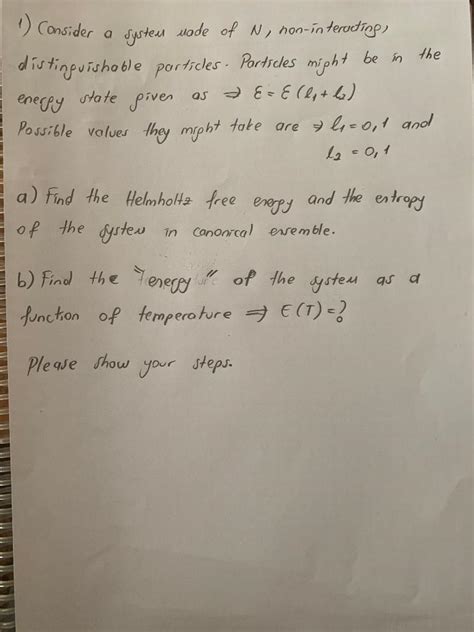 1) Consider a system made of N, non-interacting,
distinguishable particles. Particles might be in the
energy state given as ⇒ ε = ε(l₁+l₂)
Possible values they might take are ⇒ l₁=0,1 and
l₂=0,1
a) Find the Helmholtz free energy and the entropy
of the system in canonical ensemble.
b) Find the "energy" of the system as a
function of temperature ⇒ E(T)=?
Please show your steps.